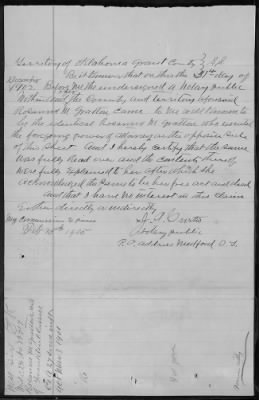 Territory of Oklahoma Grant County } S.S.
Be it known that on this the 31st day of
December
1902 Before me the undersigned a Notary public
Within and the County and territory aforesaid
Rosanna M. Gratton came to me well known to
be the identical Rosanna M. Gratton who executed
the foregoing power of attorney on the opposite side
of this Sheet And I hereby certify that the same
was fully read over and the contents thereof
were fully explained to her after which she
acknowledged the same to be her free act and deed
and that I have no interest in this claim
Either directly or indirectly
My Commission Expires
Feb 25th 1905
Notary public
P.O. address Medford O.T.